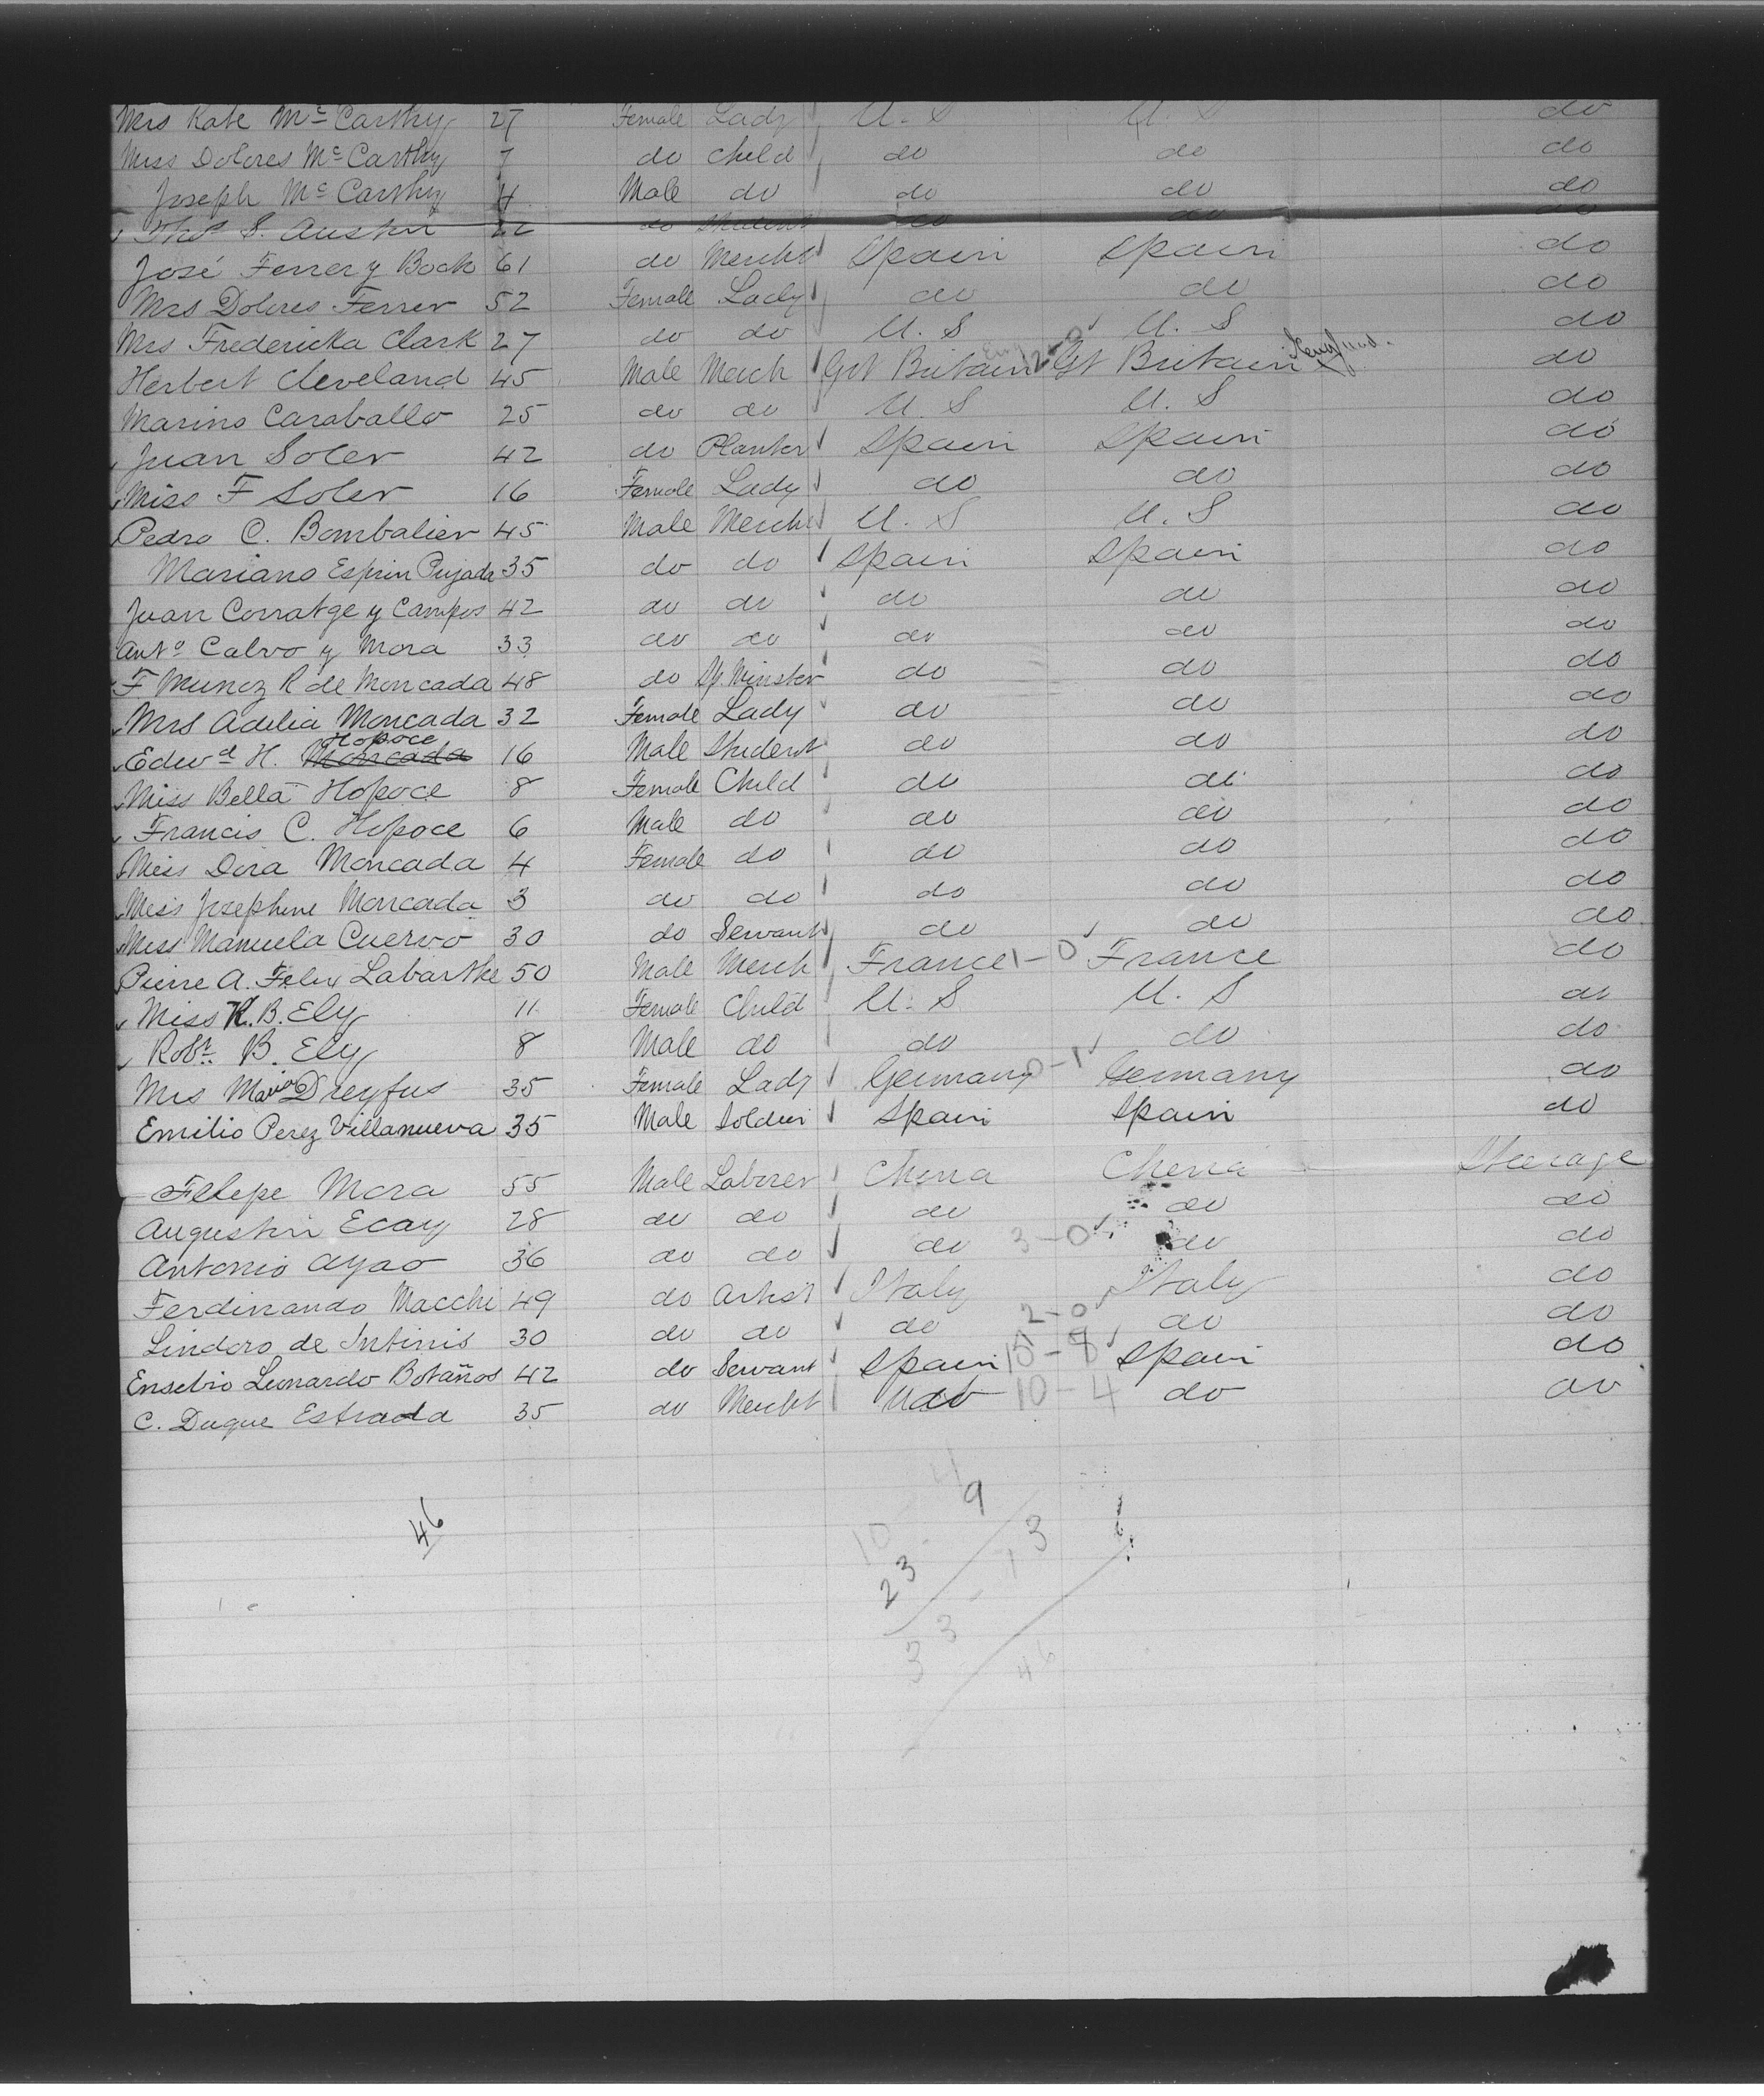 Mrs Kate McCarthy 27 Female Lady U. S U. S do
Miss Dolores McCarthy 7 do Child do do do
Joseph McCarthy 4 Male do do do do
Thos S. Austin 22 do Student do do do
José Ferrer y Bock 61 do Mercht Spain Spain do
Mrs Dolores Ferrer 52 Female Lady do do do
Mrs Fredericka Clark 27 do do U. S U. S do
Herbert Cleveland 45 Male Merch Grt Britain Eng 2-0 Gt Britain England. do
Marino Caraballo 25 do do U. S U. S do
Juan Soler 42 do Planter Spain Spain do
Miss F Soler 16 Female Lady do do do
Pedro C. Bombalier 45 Male Merch U. S U. S do
Mariano Esprin Pujada 35 do do Spain Spain do
Juan Corratge y Campos 42 do do do do do
Anto Calvo y Mora 33 do do do do do
F Munoz R de Moncada 48 do Sp. Minster do do do
Mrs Adelia Moncada 32 Female Lady do do do
Hopoce
Edwd H. Moncada 16 Male Student do do do
Miss Bella Hopoce 8 Female Child do do do
Francis C. Hopoce 6 Male do do do do
Miss Dora Moncada 4 Female do do do do
Miss Josephine Moncada 3 do do do do do
Miss Manuela Cuervo 30 do Servant do do do
Pierre A. Felix Labarthe 50 Male Merch France 1-0 France do
Miss K. B. Ely 11 Female Child U. S U. S do
Robt. B. Ely 8 Male do do do do
Mrs Maria Dreyfus 35 Female Lady Germany 0-1 Germany do
Emilio Perez Villanueva 35 Male Soldier Spain Spain do
Felepe Mora 55 Male Laborer China China Steerage
Augustin Ecay 28 do do do do do
Antonio Ayao 36 do do do 3-0 do do
Ferdinando Macchi 49 do Artist Italy Italy do
Lindoro de Intinis 30 do do do 2-0 do do
Ensebio Leonardo Botaños 42 do Servant Spain 15-8 Spain do
C. Duque Estrada 35 do Mercht do 10-4 do do
46
10 4
23 9
33 13
46